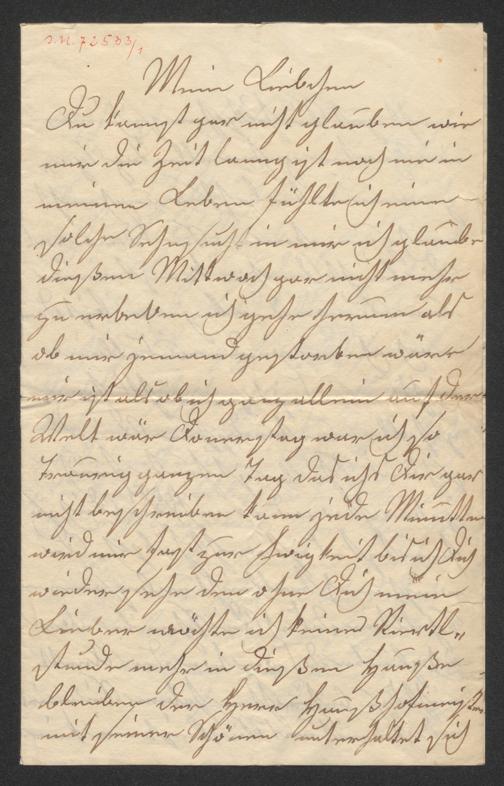 I.N. 72533/1
Mein Liebchen
Du kannst gar nicht glauben wie
mir die Zeit lanng ist noch nie in
meinen Leben fühlte ich eine
solche Sehnsucht in mir ich glaube
dießen Mittwoch gar nicht mehr
zu erleben ich gehe herum als
ob mir jemand gestorben wäre
mir ist als ob ich ganz allein auf der
Welt wär Donnerstag war ich so
traurig ganzen Tag das ichs Dir gar
nicht beschreiben kann jede Minutte
wird mir fast zur Ewigkeit bis ich Dich
wieder sehe den ohne Dich mein
Lieber möchte ich keine Viertl-
stunde mehr in dießen Hauße
bleiben der Herr Haußhofmeister
mit seiner Schönen unterhaltet sich